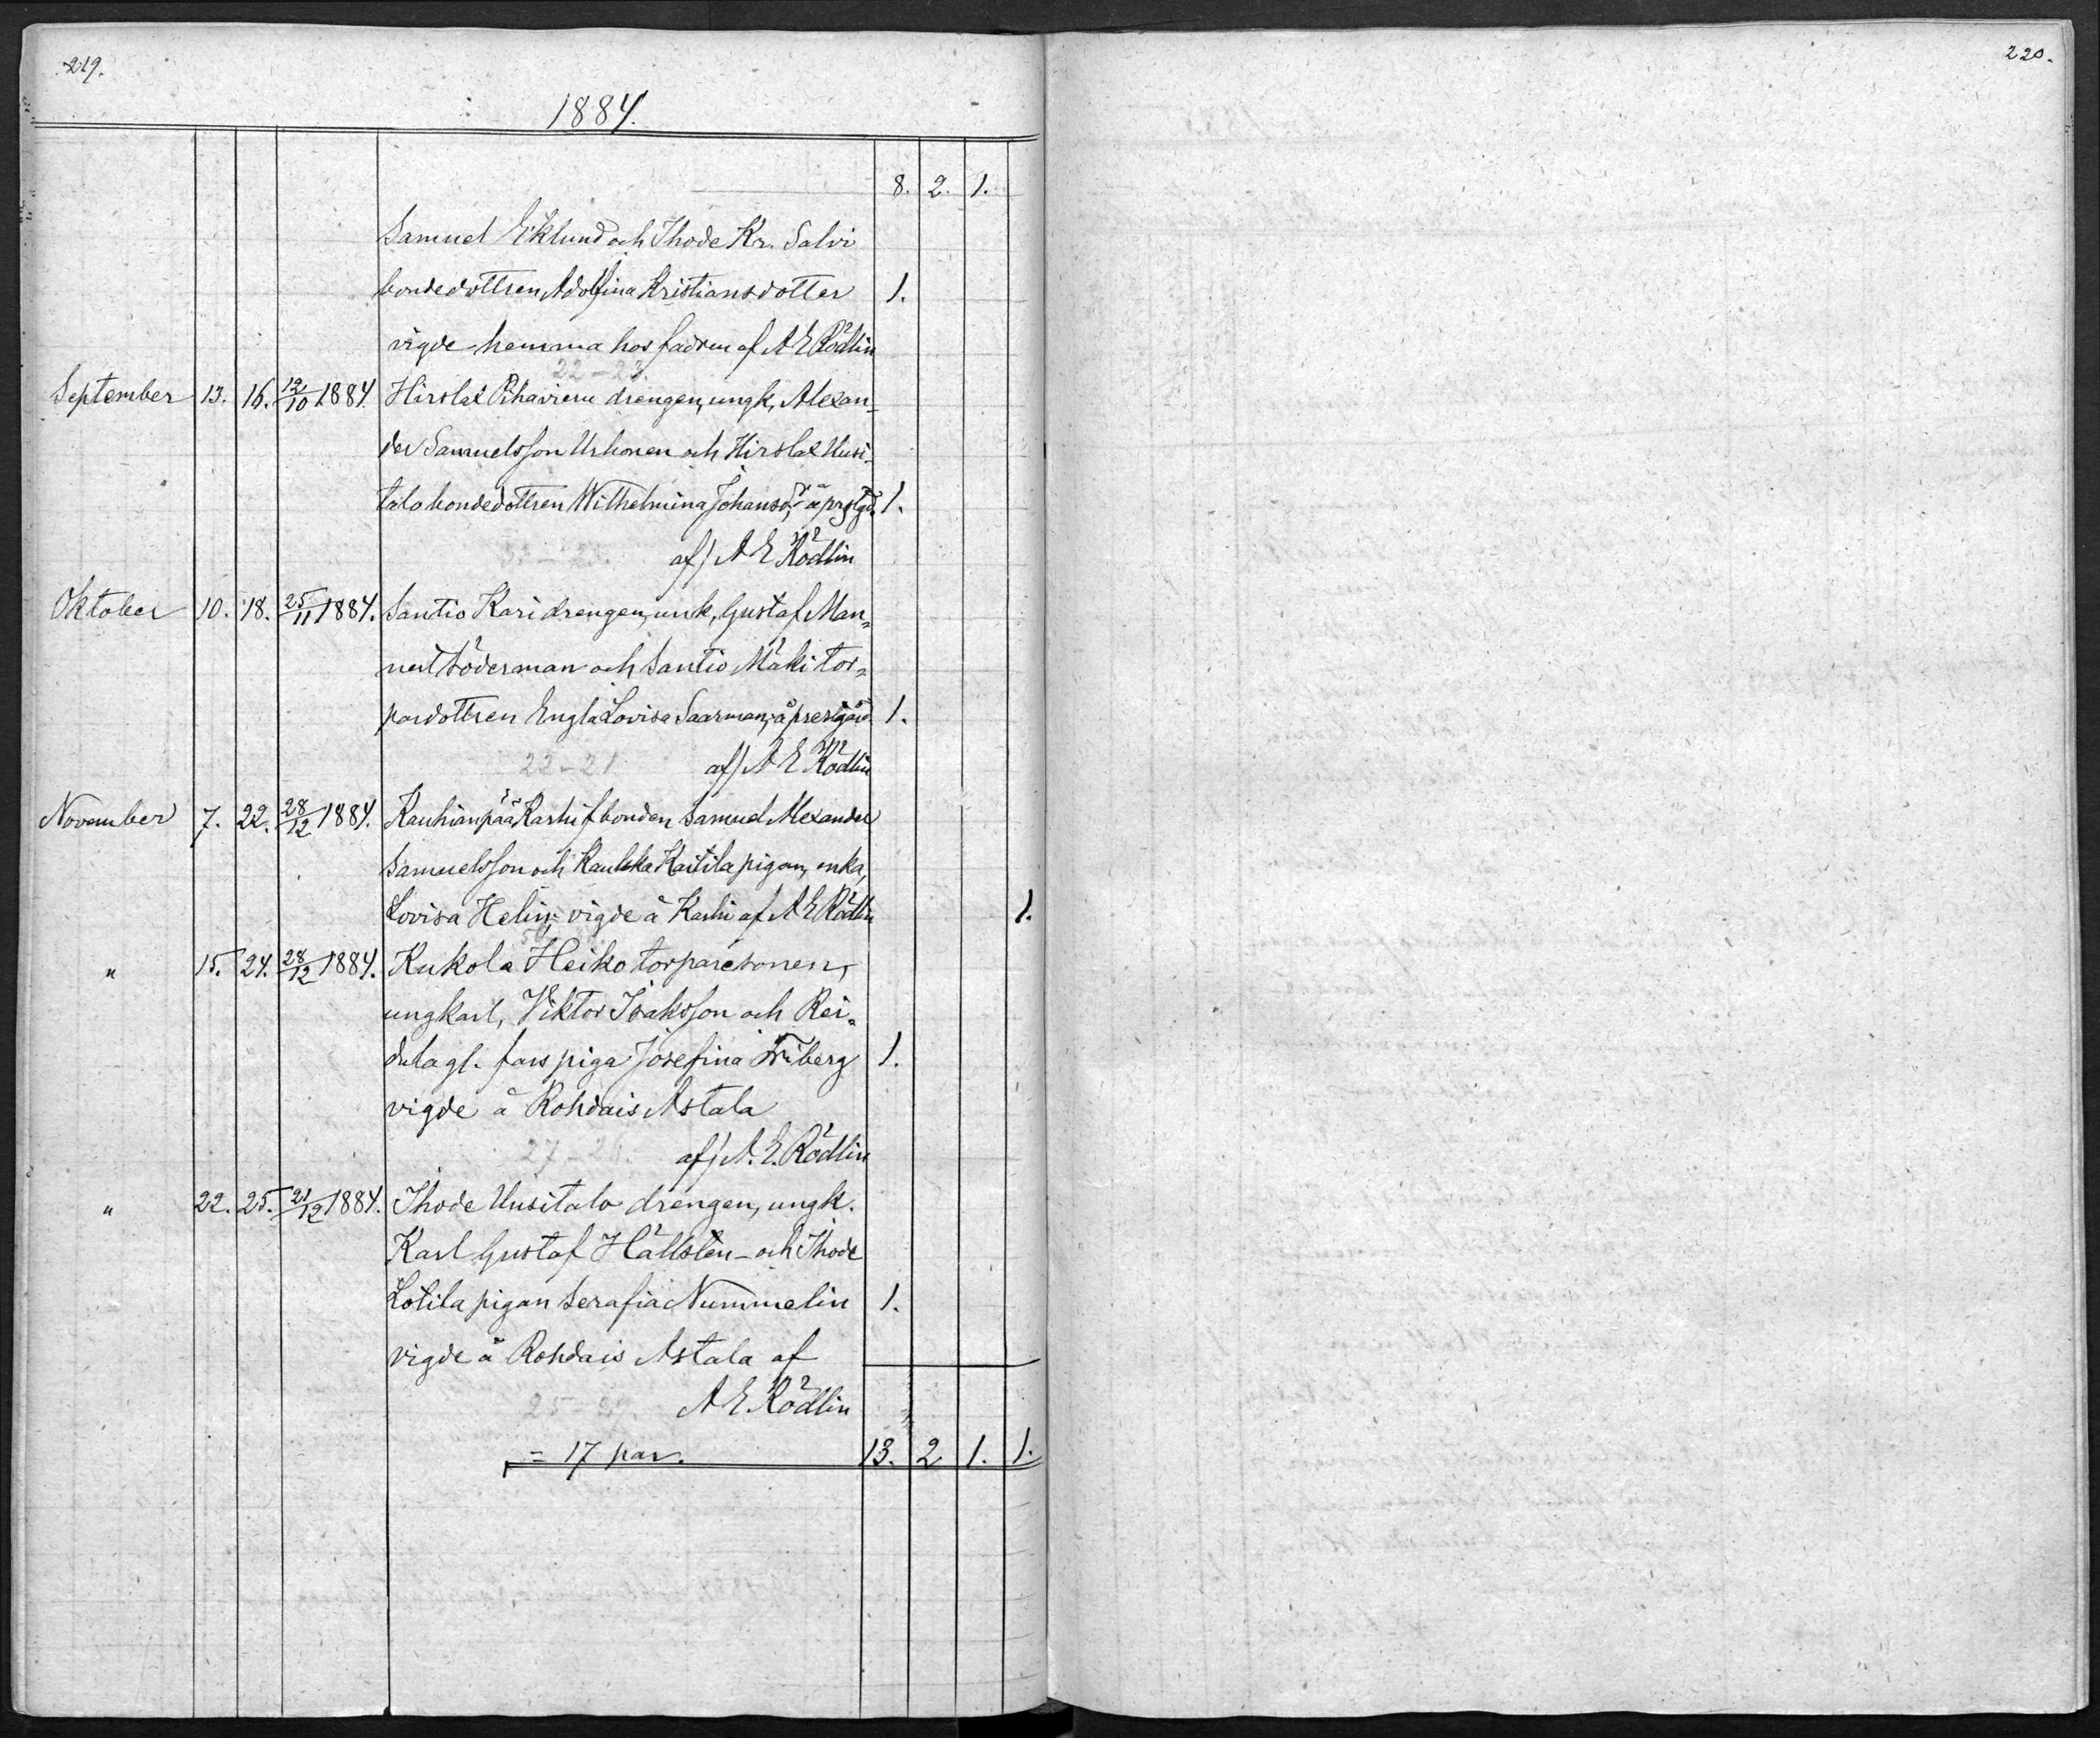 219.
220.
1884.
8. 2. 1.
Samuel Eklund och Ihode Kr. Salvi
bondedottren Adolfina Kristiansdotter 1.
vigde hemma hos fadren af A E Rödlin
22-23.
September 13. 16. 12/10 1884. Hirslax Pihavieru drengen, ungk, Alexan-
der Samuelsson Urhonen och Hirslax Uusi-
talo bondedottren Wilhelmina Johansd., å prstgd. 1.
af) A E Rödlin
Oktober 10. 18. 25/11 1884. Santio Kari drengen, unk, Gustaf Man=
nert Söderman och Santio Mäki tor=
pardottren Engla Lovisa Saarman, å prestgård. 1.
22-21 af) A E Rödlin
November 7. 22. 28/12 1884. Kauhianpää Karhi f bonden Samuel Alexander
Samuelsson och Kaukka Kaitila pigan, enka,
Lovisa Helin, vigde å Karhi af A E Rödlin 1.
" 15. 24. 28/12 1884. Kukola Heiko torparesonen,
ungkarl, Viktor Isaksson och Rei=
dula gl. fars piga Josefina Friberg 1.
vigde å Rohdais Astala
27-26. af) A. E. Rödlin
" 22. 25. 21/12 1884. Ihode Uusitalo drengen, ungk.
Karl Gustaf Hällsten och Ihode
Lotila pigan Serafia Nummelin 1.
vigde å Rohdais Astala af
A E. Rödlin
= 17 par. 13. 2 1. 1.